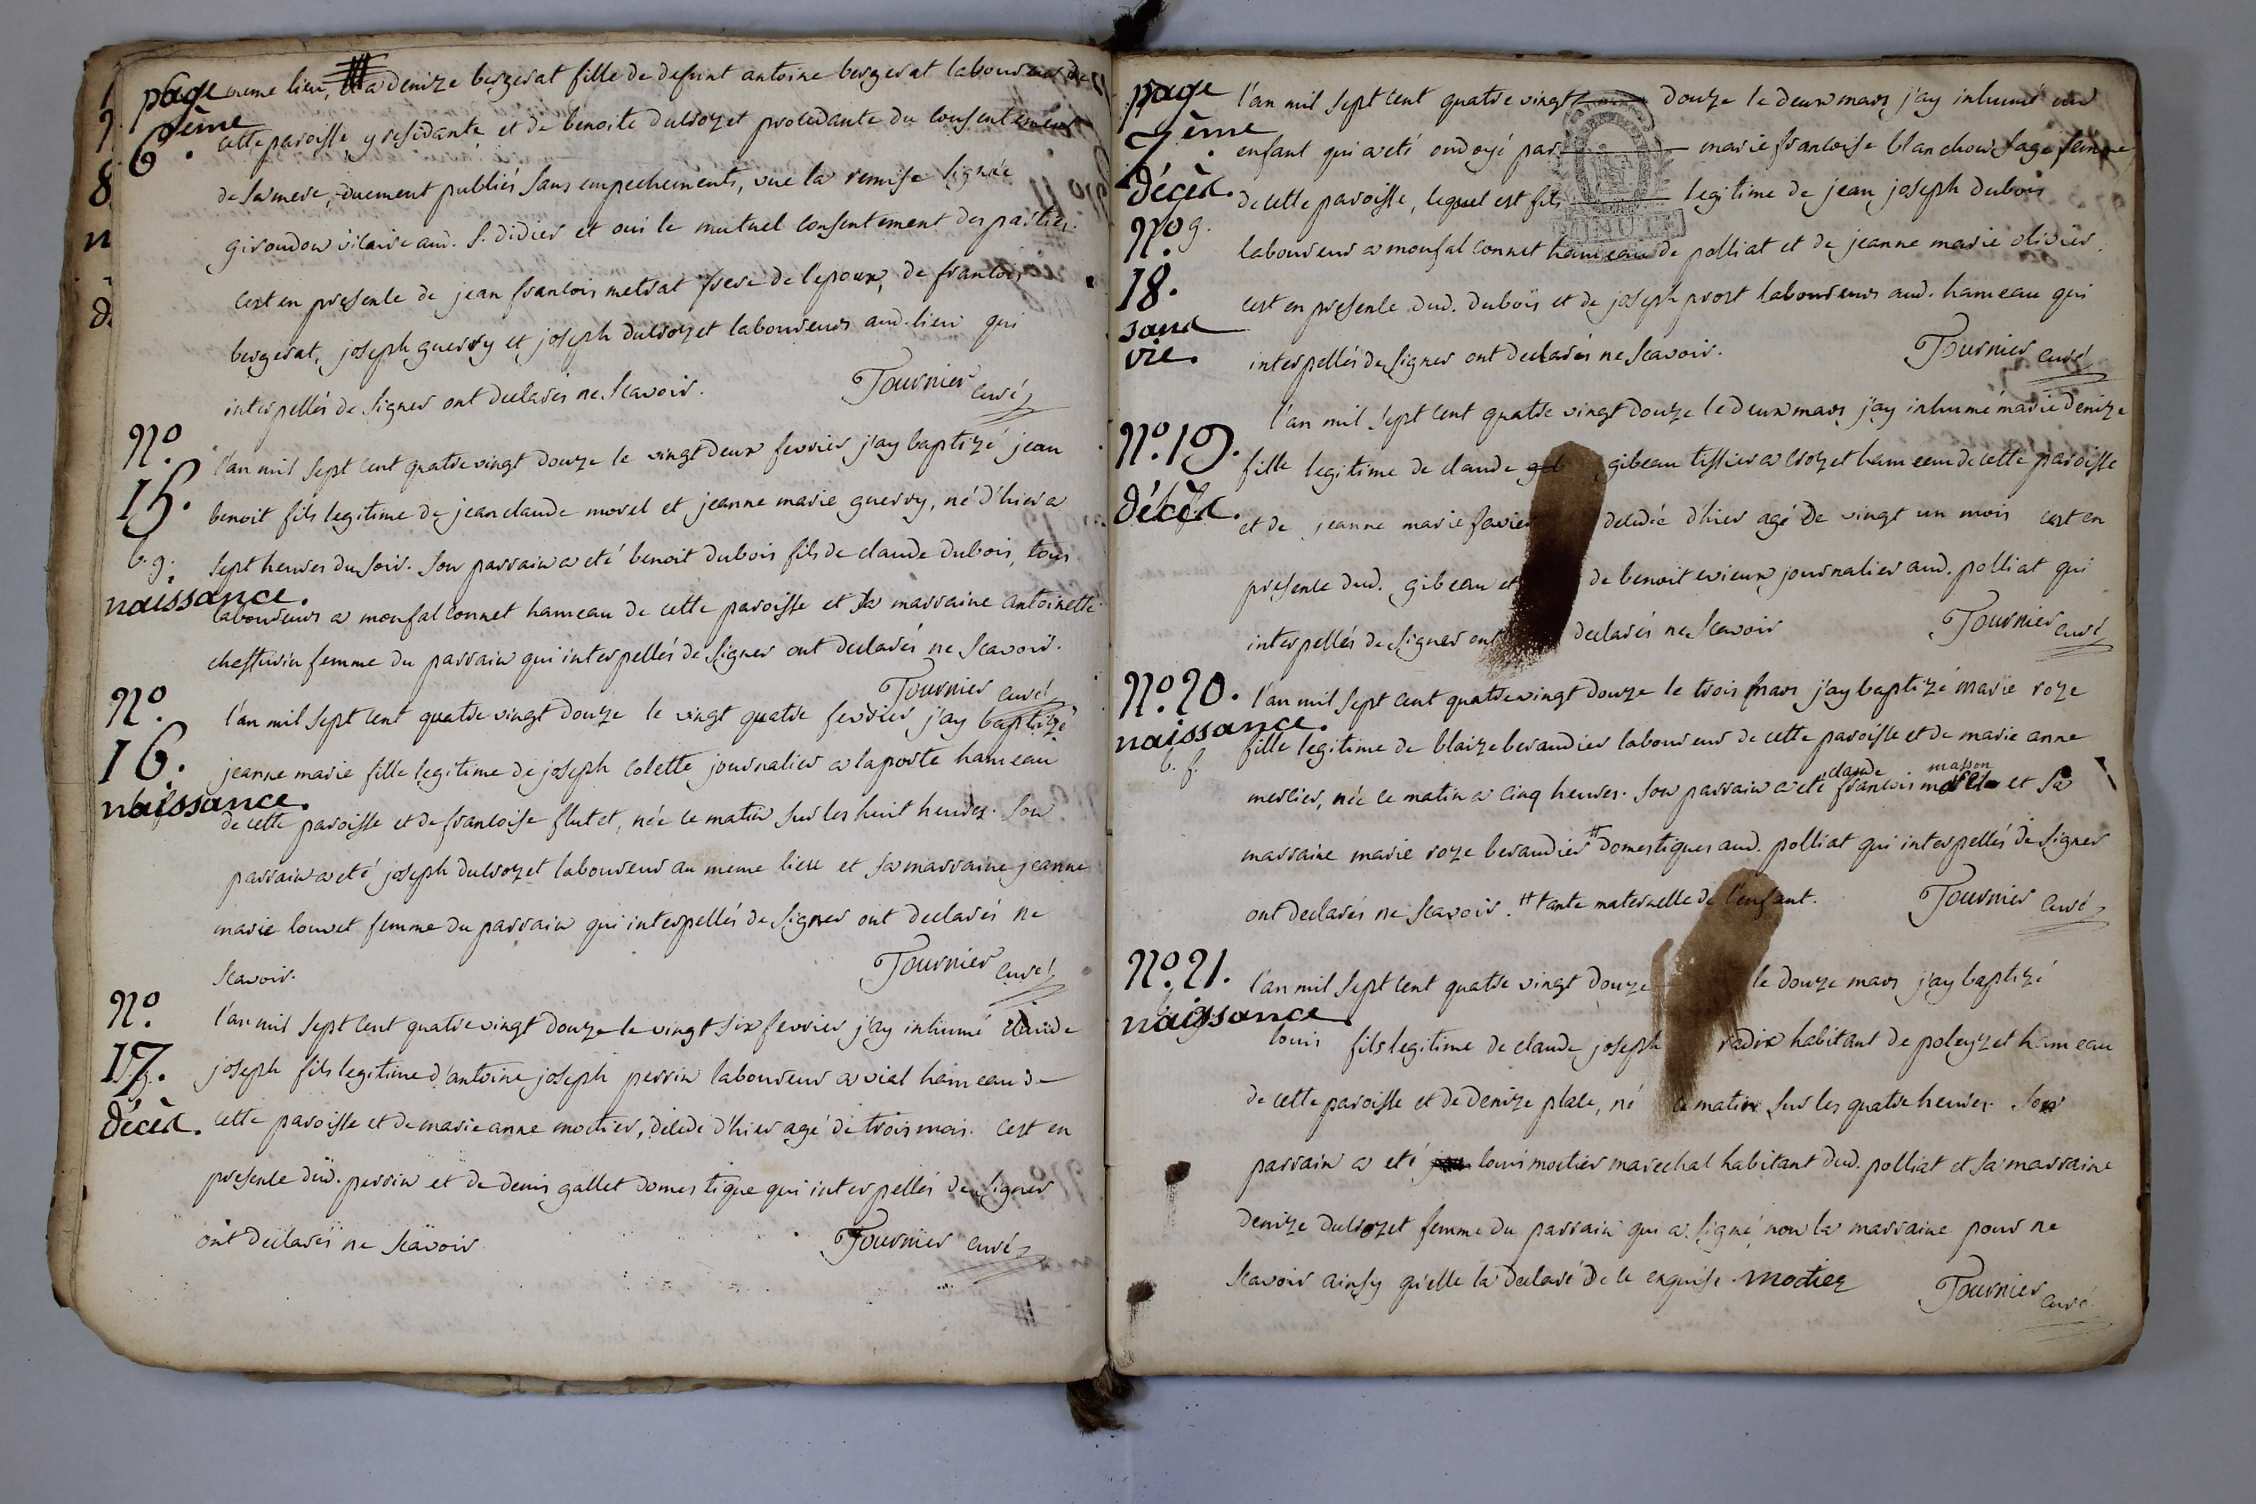 page
6ème.
meme lieu, a denize bergerat fille de defunt antoine bergerat laboureur de
cette paroisse y residante, et de benoite ducrozet procedante du consentement
de sa mere, duement publiés sans empechements, vue la remise signée
giroudon vicaire aud. S. didier et oui le mutuel consentement des parties.
cest en presence de jean francois metrat frere de l'epoux, de francois
bergerat, joseph guerry et joseph ducrozet laboureurs aud. lieu qui
interpellés de signer ont declarés ne scavoir. Tournier curé
No.
15.
b. g.
naissance.
l'an mil sept cent quatre vingt douze le vingt deux fevrier j'ay baptizé jean
benoit fils legitime de jean claude morel et jeanne marie guerry, né d'hier a
sept heures du soir. Son parrain a eté benoit dubois fils de claude dubois, tous
laboureurs a monfalconnet hameau de cette paroisse et sa marraine antoinette
femme du parrain qui interpellés de signer ont declarés ne scavoir.
Tournier curé
No.
16.
naissance.
l'an mil sept cent quatre vingt douze le vingt quatre fevrier j'ay baptizé
jeanne marie fille legitime de joseph colette journalier a laporte hameau
de cette paroisse et de francoise flutet, née ce matin sur les huit heures. Son
parrain a eté joseph ducrozet laboureur au meme lieu et sa marraine jeanne
marie louvet femme du parrain qui interpellés de signer ont declarés ne
scavoir. Tournier curé
No.
17.
décèd.
l'an mil sept cent quatre vingt douze le vingt six fevrier j'ay inhumé claude
joseph fils legitime d'antoine joseph perrin laboureur a vial hameau de
cette paroisse et de marie anne moctier, décédé d'hier agé de trois mois. cest en
presence dud. perrin et de denis gallet domestique qui interpellés de signer
ont declarés ne scavoir Tournier curé
page
7ème.
décèd.
No. g.
18.
sans
vie.
l'an mil sept cent quatre vingt douze le deux mars j'ay inhumé un
enfant qui a eté ondoyé par marie francoise blanchon sage femme
de cette paroisse, lequel est fils legitime de jean joseph dubois
laboureur a monfalconnet hameau de polliat et de jeanne marie olivier.
cest en presence dud. dubois et de joseph prost laboureurs aud. hameau qui
interpellés de signer ont declarés ne scavoir. Tournier curé
No. 19.
décèd.
l'an mil sept cent quatre vingt douze le deux mars j'ay inhumé marie denize
fille legitime de claude gibeau tissier a crozet hameau de cette paroisse
et de jeanne marie favier decedée d'hier agé de vingt un mois cest en
presence dud. gibeau et de benoit evieux journalier aud. polliat qui
interpellés de signer ont declarés ne scavoir Tournier curé
No. 20.
naissance.
b. f.
l'an mil sept cent quatre vingt douze le trois mars j'ay baptizé marie roze
fille legitime de blaize beraudier laboureur de cette paroisse et de marie anne
claude masson
mercier, née ce matin a cinq heures. Son parrain a eté francois et sa
marraine marie roze beraudier # domestiques aud. polliat qui interpellés de signer
ont declarés ne scavoir. # tante maternelle de l'enfant. Tournier curé
No. 21.
naissance
l'an mil sept cent quatre vingt douze le douze mars j'ay baptizé
louis fils legitime de claude joseph radix habitant de poleyzet hameau
de cette paroisse et de denize place, né ce matin sur les quatre heures. Son
parrain a eté louis moctier marechal habitant dud. polliat et sa marraine
denize ducrozet femme du parrain qui a signé, non la marraine pour ne
scavoir ainsy qu'elle la declaré de ce enquise. Moctier Tournier curé